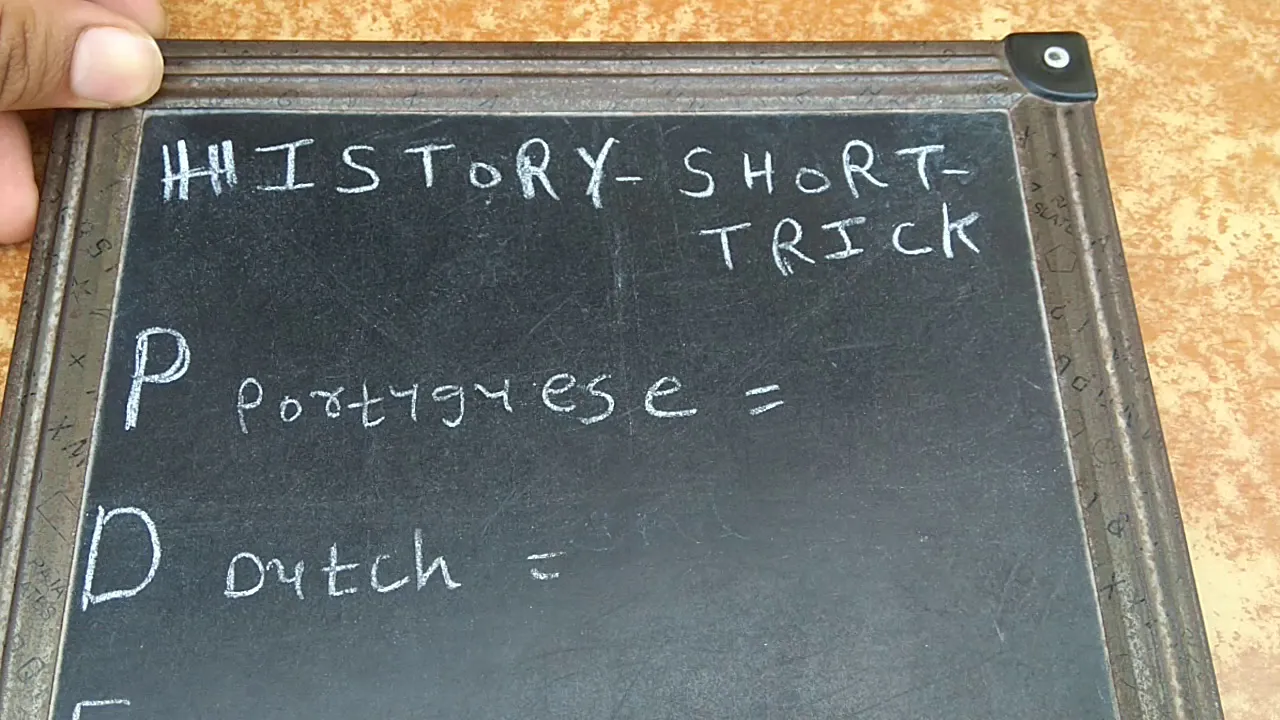 HISTORY- SHORT-
TRICK
P Portuguese =
D Dutch =